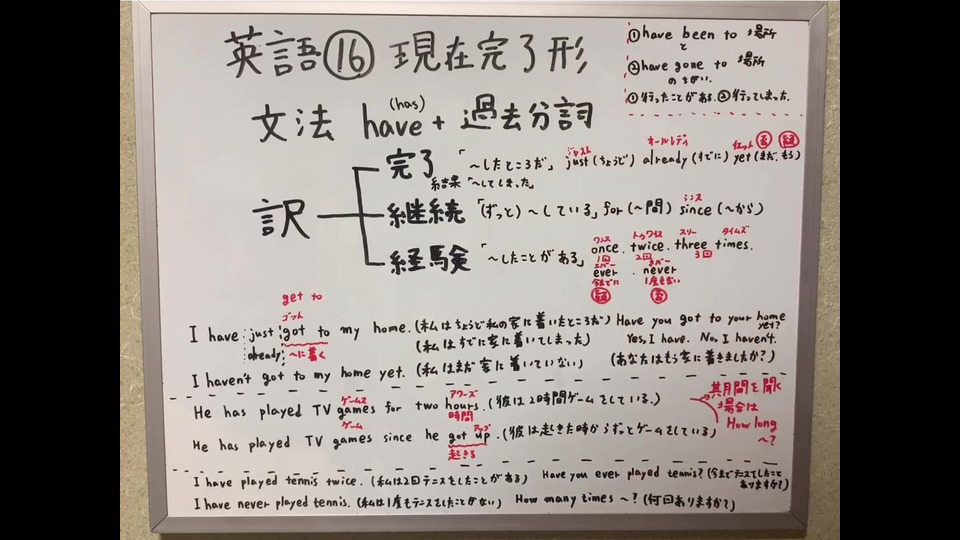 英語⑯ 現在完了形
①have been to 場所
と
②have gone to 場所
のちがい.
①行ったことがある.②行ってしまった.
文法 have + 過去分詞
(has)
訳
完了「~したところだ」just(ちょうど) already(すでに) yet(まだ.もう)
ジャスト オールレディ イェット 否 疑
結果「~してしまった」
継続「(ずっと)~している」for(~間) since(~から)
シンス
経験「~したことがある」once. twice. three times.
ワンス トゥワイス スリー タイムズ
1回 2回 3回
エバー ネバー
ever . never
今までに 1度もない
疑 否
get to
ゴット
I have just got to my home.(私はちょうど私の家に着いたところだ) Have you got to your home yet?
already (私はすでに家に着いてしまった) Yes, I have. No, I haven't.
~に着く
I haven't got to my home yet.(私はまだ家に着いていない) (あなたはもう家に着きましたか?)
ゲームズ アワーズ
He has played TV games for two hours.(彼は2時間ゲームをしている.)
時間
ゲーム アップ
He has played TV games since he got up.(彼は起きた時からずっとゲームをしている)
起きる
期間を聞く
場合は
How long
~?
I have played tennis twice.(私は2回テニスをしたことがある) Have you ever played tennis?(今までテニスをしたことありますか?)
I have never played tennis.(私は1度もテニスをしたことがない) How many times ~?(何回ありますか?)